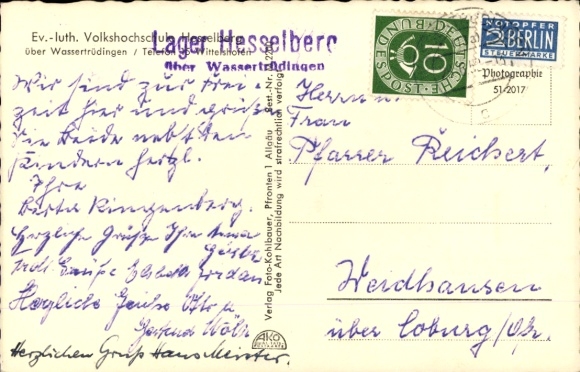 Ev.-luth. Volkshochschule Hesselberg
über Wassertrüdingen / Telefon Wittelshofen
Lager Hesselberg
über Wassertrüdingen
Wir sind zur Frei-
zeit hier und grüßen
Sie beide nebst den
Kindern herzl.
Ihre
Berta Ringenberg.
Herzliche Grüße Ihre Anna
Elsbeth Jordan
Herzliche Grüße Otto u.
Gertrud
Herzlichen Gruß Hans Meister.
Verlag Foto-Kohlbauer, Pfronten 1 Allgäu Best.-Nr.
Jede Art Nachbildung wird strafrechtlich verfolgt
AKO
DEUTSCHE BUNDESPOST
10
NOTOPFER
2 BERLIN
STEUERMARKE
Photographie
51-2017
Herrn u.
Frau
Pfarrer Reichert,
Weidhausen
über Coburg/Ofr.